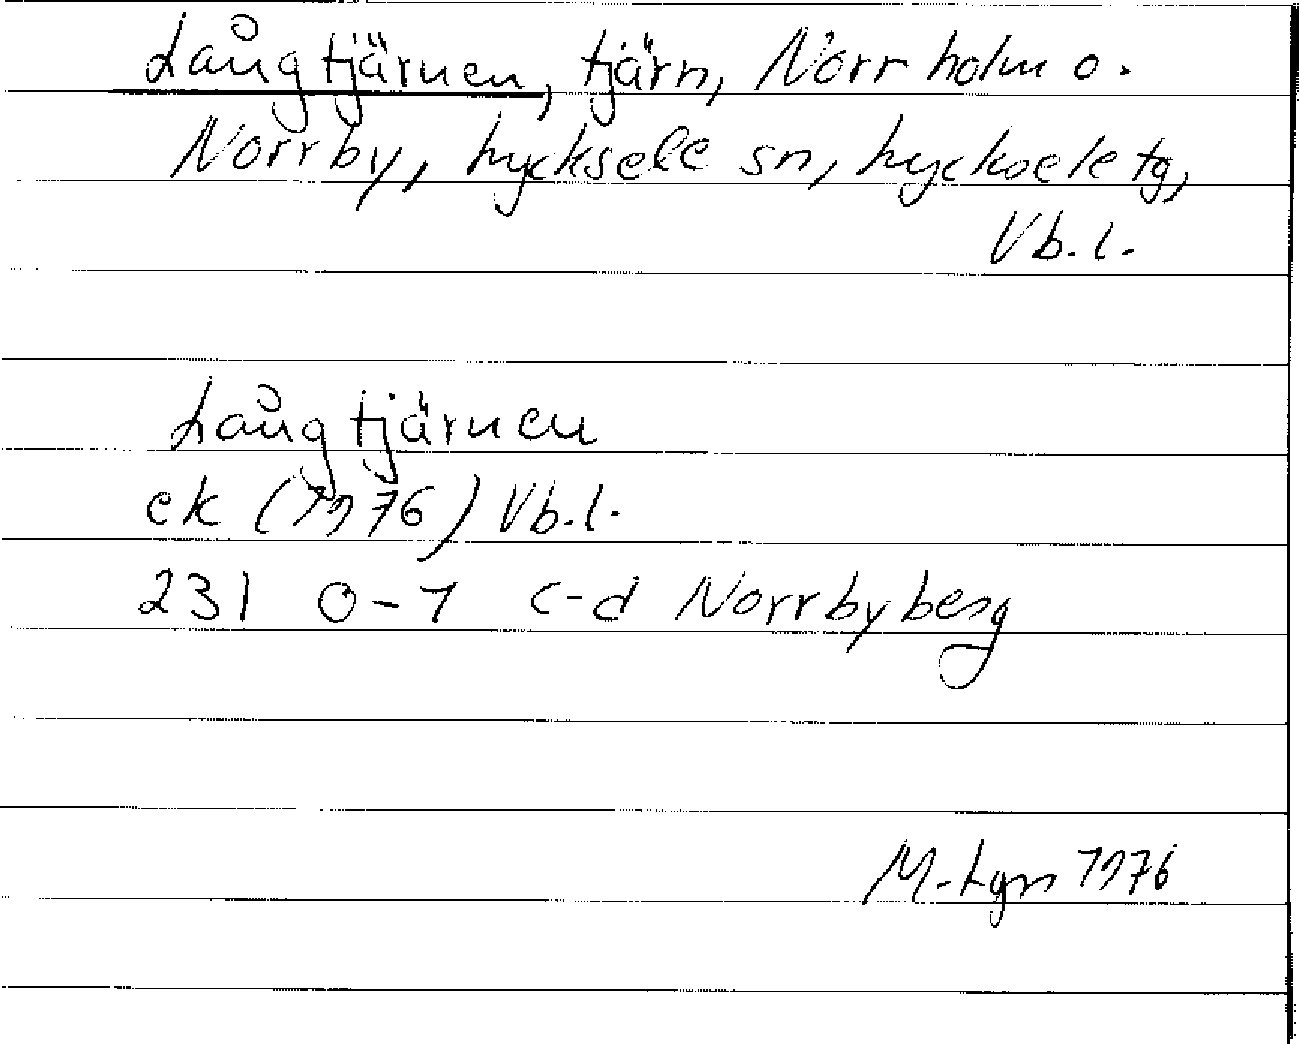 Långtjärnen, tjärn, Norrholm o.
Norrby, Lycksele sn, Lycksele tg,
Vb.l.
Långtjärnen
ek (1976) Vb.l.
231 0-1 c-d Norrbyberg
M-Lgn 1976